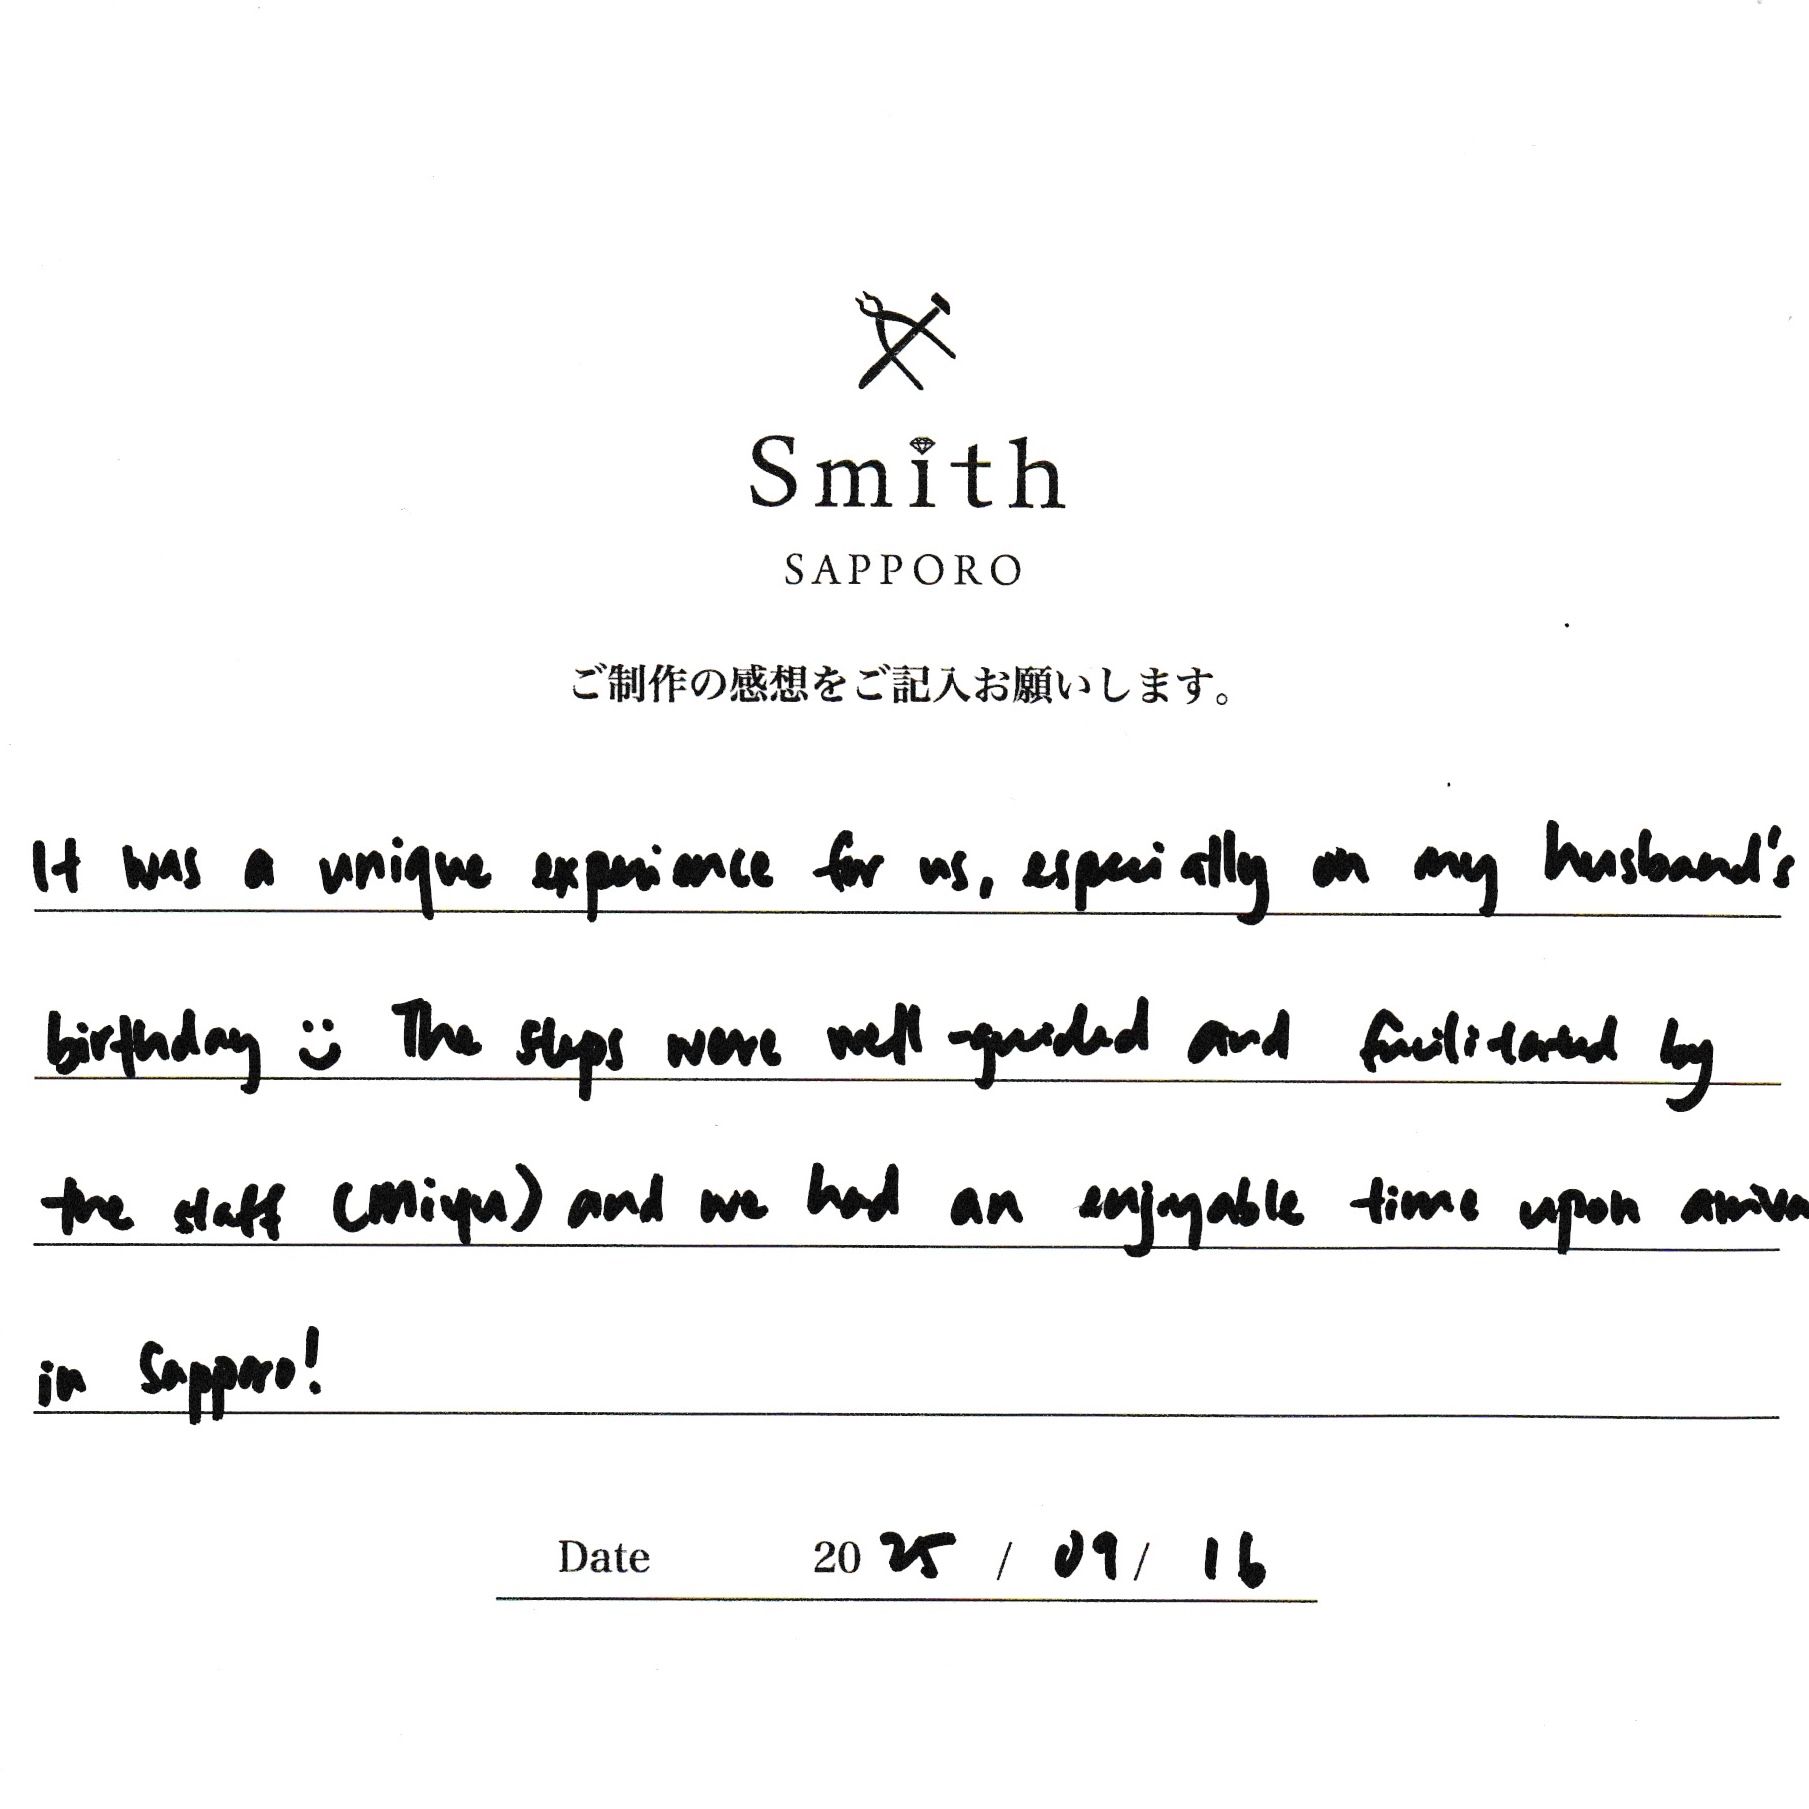 Smith
SAPPORO
ご制作の感想をご記入お願いします。
It was a unique experience for us, especially on my husband's
birthday :) The steps were well-guided and facilitated by
the staff (Miyu) and we had an enjoyable time upon arriva
in Sapporo!
Date 2025 / 09 / 16